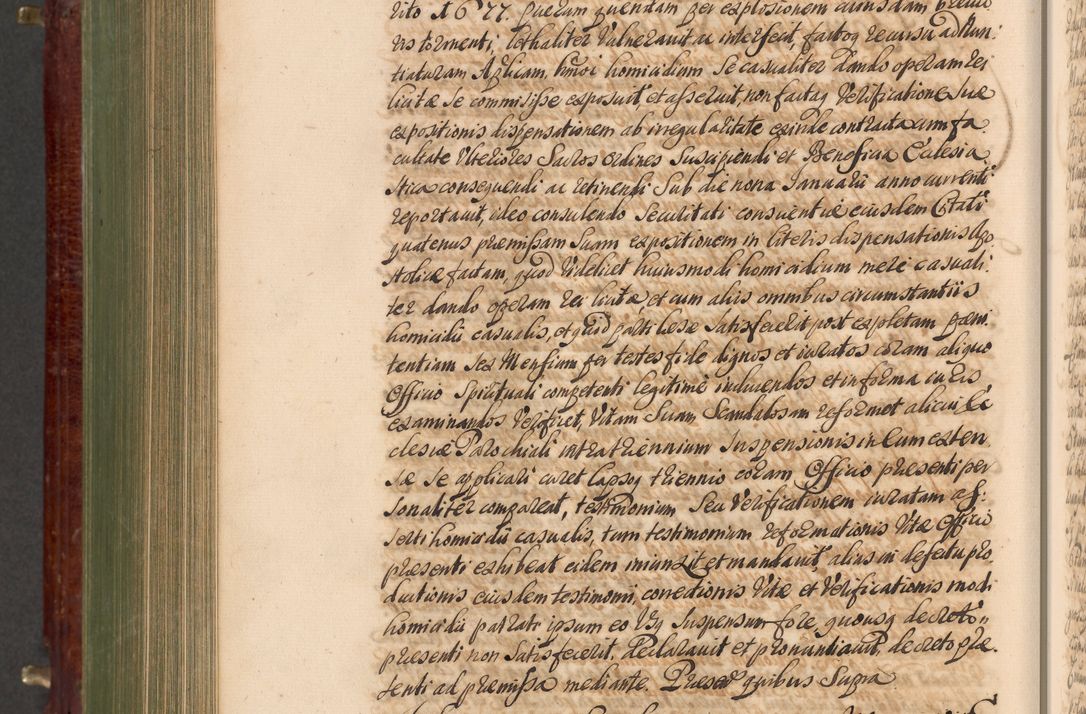 rito 1677. quesam quendam per explosionem cuiusdam
ris tormenti, lethaliter vulnerauit ac interfecit, factoq recursu ad Nun-
tiaturam Aplicam, hmoi homicidium se casualiter dando operam rei
licitæ se commisisse exposuit, et asseruit, non factaq Verificatione suæ
expositionis dispensationem ab irregularitate exinde contracta cum fa-
cultate Vlteriores Sacros ordines Suscipiendi et Beneficia Ecclesia-
stica consequendi ac retinendi Sub die nona Januarii anno currenti
reportauit, ideo consulendo Securitati conscientiæ eiusdem Citati
quatenus præmissam Suam expositionem in literis dispensationis Apo-
stolicæ factam, quod Videlicet huiusmodi homicidium mere casuali-
ter dando operam rei licitæ et cum aliis omnibus circumstantiis
homicidii casualis, et quod parti læsæ Satisfecerit post expletam pæni-
tentiam sex Mensium per testes fide dignos et iuratos coram aliquo
Officio Spirituali competenti legitime inducendos et in forma iuris
examinandos Verificet, Vitam Suam Scandalosam reformet alicui Ec-
clesiæ Parochiali intra triennium Suspensionis in Eum exten-
sæ se applicari curet Lapsoq triennio coram Officio præsenti per-
sonaliter compareat, testimonium Seu Verificationem iuratam as-
serti homicidii casualis, tum testimonium reformationis Vitæ Officio
præsenti exhibeat eidem iniunxit et mandauit, alias in defectu pro-
ductionis eiusdem testimonii, corectionis Vitæ et Verificationis modi
homicidii patrati ipsum eo Vsq Suspensum fore, quousq decreto
præsenti non Satisfecerit, declarauit et pronuntiauit, decreto præ-
senti ad præmissa mediante. Præsen quibus Supra